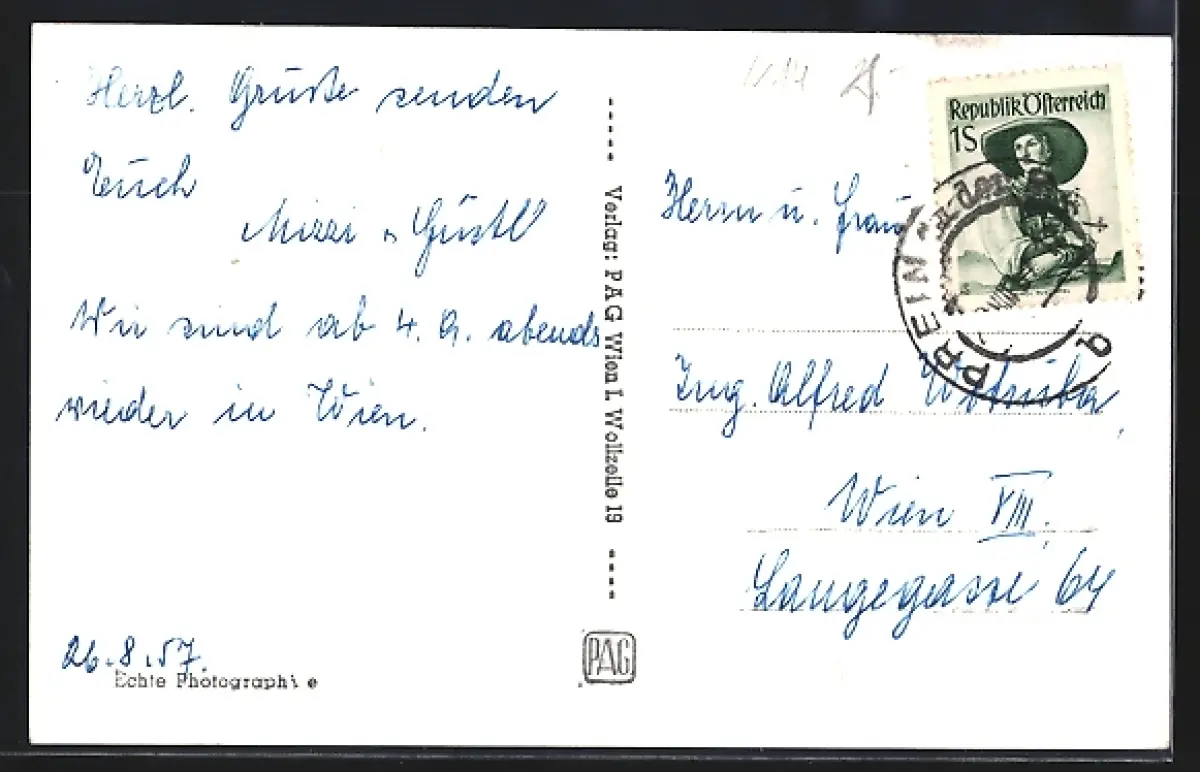 Herzl. Grüße senden
Euch
Mizzi u Gustl
Wir sind ab 4. 9. abends
wieder in Wien.
26.8.57.
Echte Photographie
Verlag: PAG Wien I. Wollzeile 19
PAG
Republik Österreich
1S
PREIN a. der
Herrn u. Frau
Ing. Alfred Wotruba,
Wien VIII.
Langegasse 64